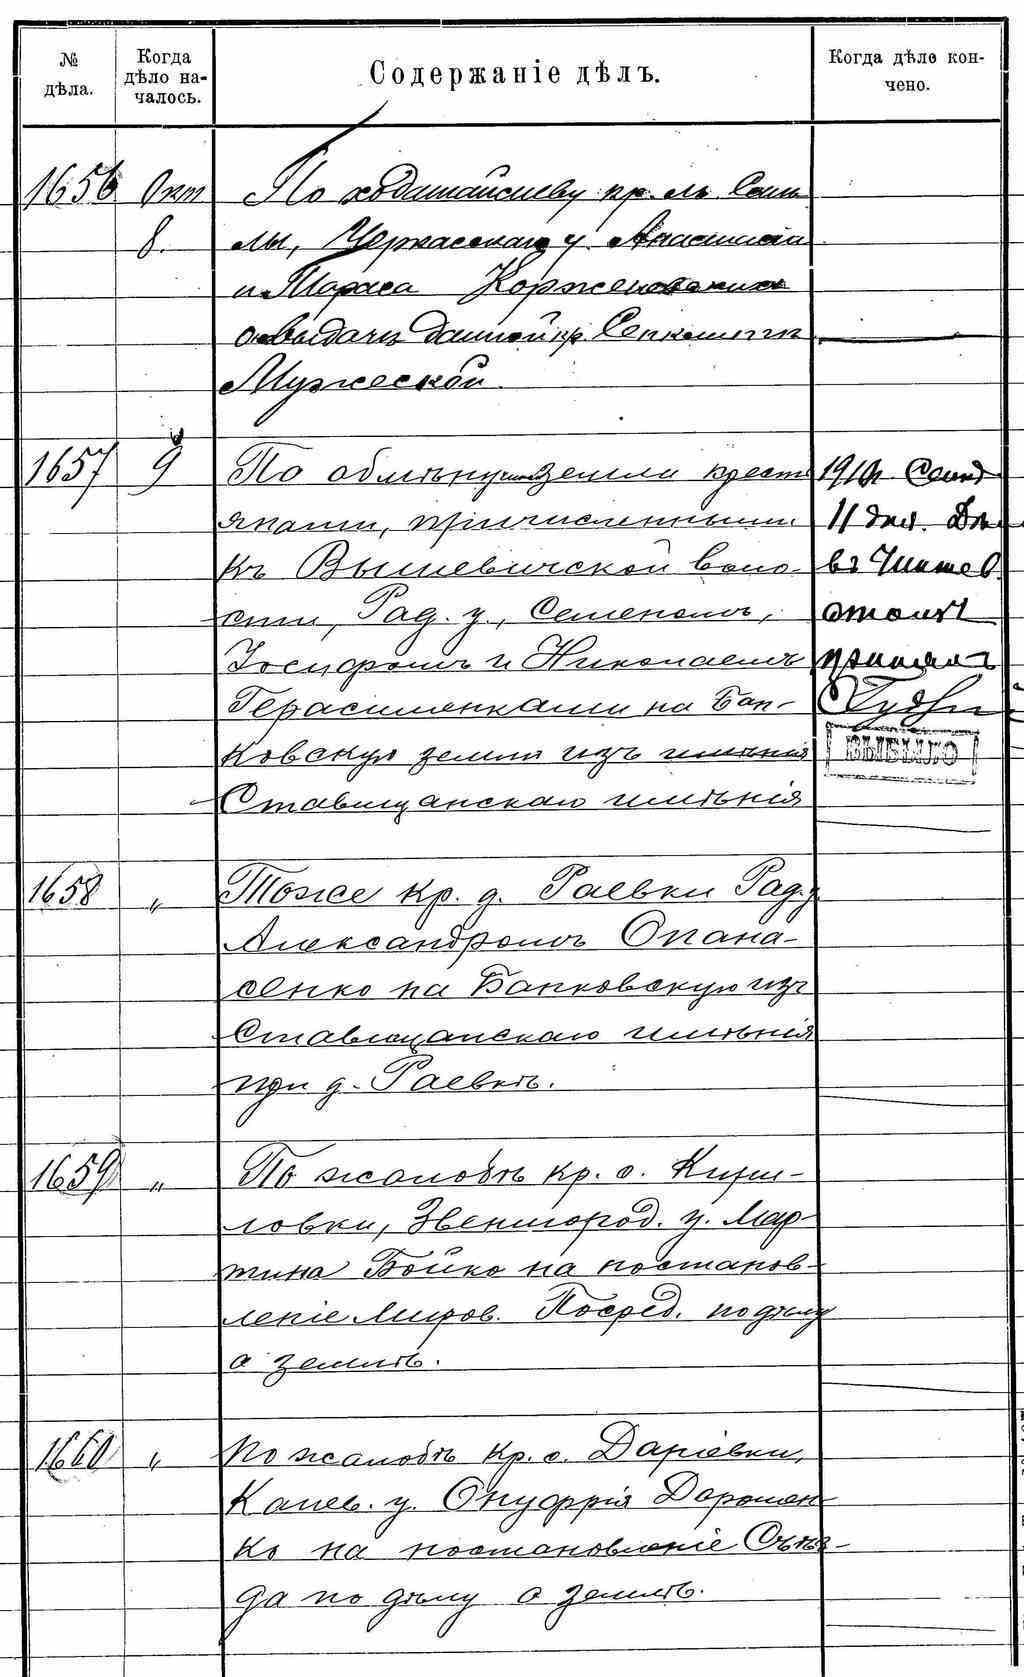 № дѣла.
Когда дѣло на-
чалось.
Содержаніе дѣлъ.
Когда дѣло кон-
чено.
1656
Окт
8.
По ходатайству кр. м. Смѣ
лы, Черкасскаго у. Анастасіи
и Тараса Корженовскихъ
о выдачѣ данной кр.
Мужеской.
1657
9
По обмѣну земли крест
янами, причисленными
къ Вышевичской воло-
сти, Рад. у., Семеномъ,
Іосифомъ и Николаемъ
Герасименками на Бан-
ковскую землю изъ имѣнія
Ставищанскаго имѣнія
11 дня.
въ
столъ
принялъ
ВЫБЫЛО
1658
„
Тоже кр. д. Раевки Рад. у.
Александромъ Опана-
сенко на Банковскую изъ
Ставищанскаго имѣнія
при д. Раевкѣ.
1659
„
По жалобѣ кр. с. Кири-
ловки, Звенигород. у. Мар-
тина Бойко на постанов-
леніе Миров. Посред. по дѣлу
о землѣ.
1660
„
По жалобѣ кр. с. Даріевки,
Канев. у. Онуфрія Дорошен-
ко на постановленіе Съѣз-
да по дѣлу о землѣ.